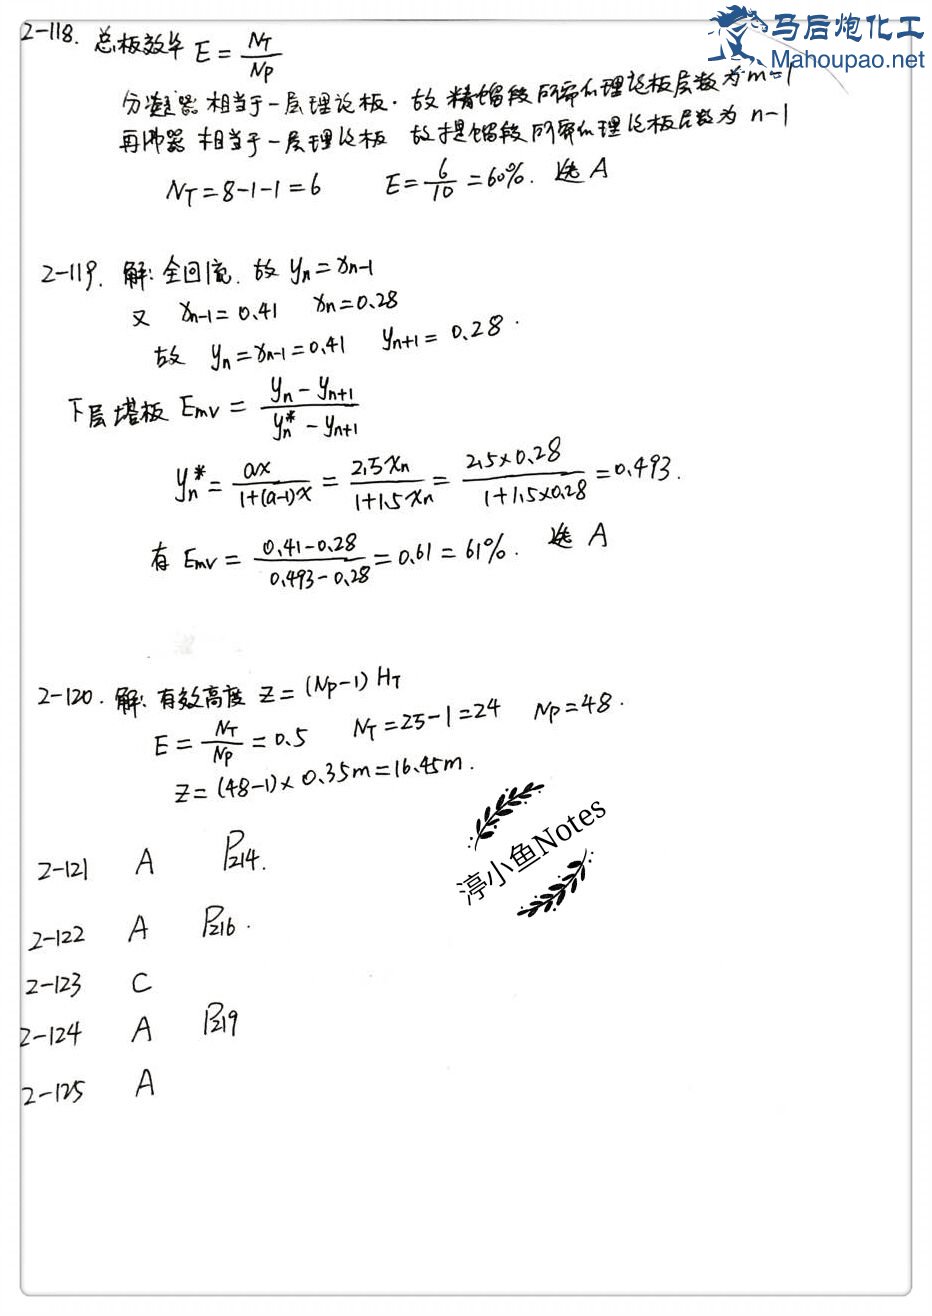 马后炮化工
Mahoupao.net
2-118. 总板效率 E = N_T / N_P
分凝器 相当于一层理论板. 故 精馏段所需的理论板层数为 m-1
再沸器 相当于一层理论板 故提馏段所需的理论板层数为 n-1
N_T = 8-1-1 = 6 E = 6/10 = 60%. 选 A
2-119. 解: 全回流. 故 y_n = x_n-1
又 x_n-1 = 0.41 x_n = 0.28
故 y_n = x_n-1 = 0.41 y_n+1 = 0.28.
下层塔板 Emv = (y_n - y_n+1) / (y_n* - y_n+1)
y_n* = ax / (1+(a-1)x) = 2.5x_n / (1+1.5x_n) = 2.5×0.28 / (1+1.5×0.28) = 0.493.
有 Emv = (0.41-0.28) / (0.493-0.28) = 0.61 = 61%. 选 A
2-120. 解: 有效高度 Z = (Np-1) H_T
E = N_T / N_P = 0.5 N_T = 25-1 = 24 Np = 48.
Z = (48-1)× 0.35m = 16.45m.
渟小鱼Notes
2-121 A P214.
2-122 A P216.
2-123 C
2-124 A P219
2-125 A